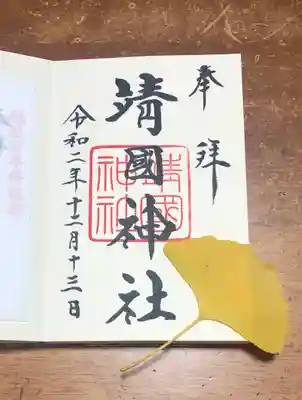 奉拝
靖國神社
靖國神社
令和二年十二月十三日